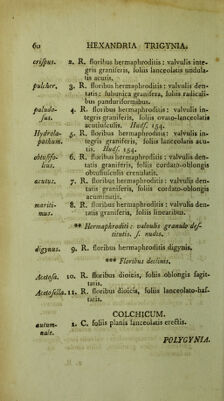 60 HEXANDRIA TRIGYNIA.
crispus. 2. R. floribus hermaphroditis: valvulis inte-
gris graniferis, foliis lanceolatis undula-
tis acutis.
pulcher. 3. R. floribus hermaphroditis: valvulis den-
tatis: subunica granifera, foliis radicali-
bus panduriformibus.
paludo-
sus. 4. R. floribus hermaphroditis: valvulis in-
tegris graniferis, foliis ovato-lanceolatis
acutiusculis. Hudf. 154.
Hydrola-
pathum. 5. R. floribus hermaphroditis: valvulis in-
tegris graniferis, foliis lanceolatis acu-
tis. Hudf. 154.
obtusifo-
lius. 6. R. floribus hermaphroditis: valvulis den-
tatis graniferis, foliis cordato-oblongis
obtusiusculis crenulatis.
acutus. 7. R. floribus hermaphroditis: valvulis den-
tatis graniferis, foliis cordato-oblongis
acuminatis.
mariti-
mus. 8. R. floribus hermaphroditis: valvulis den-
tatis graniferis, foliis linearibus.
** Hermaphroditi: valvulis granulo des-
titutis. s. nudis.
digynus. 9. R. floribus hermaphroditis digynis.
*** Floribus declinis.
Acetosa. 10. R. floribus dioicis, foliis oblongis sagit-
tatis.
Acetosella. 11. R. floribus dioicis, foliis lanceolato-has-
tatis.
COLCHICUM.
autum-
nale. 1. C. foliis planis lanceolatis erectis.
POLYGYNIA.